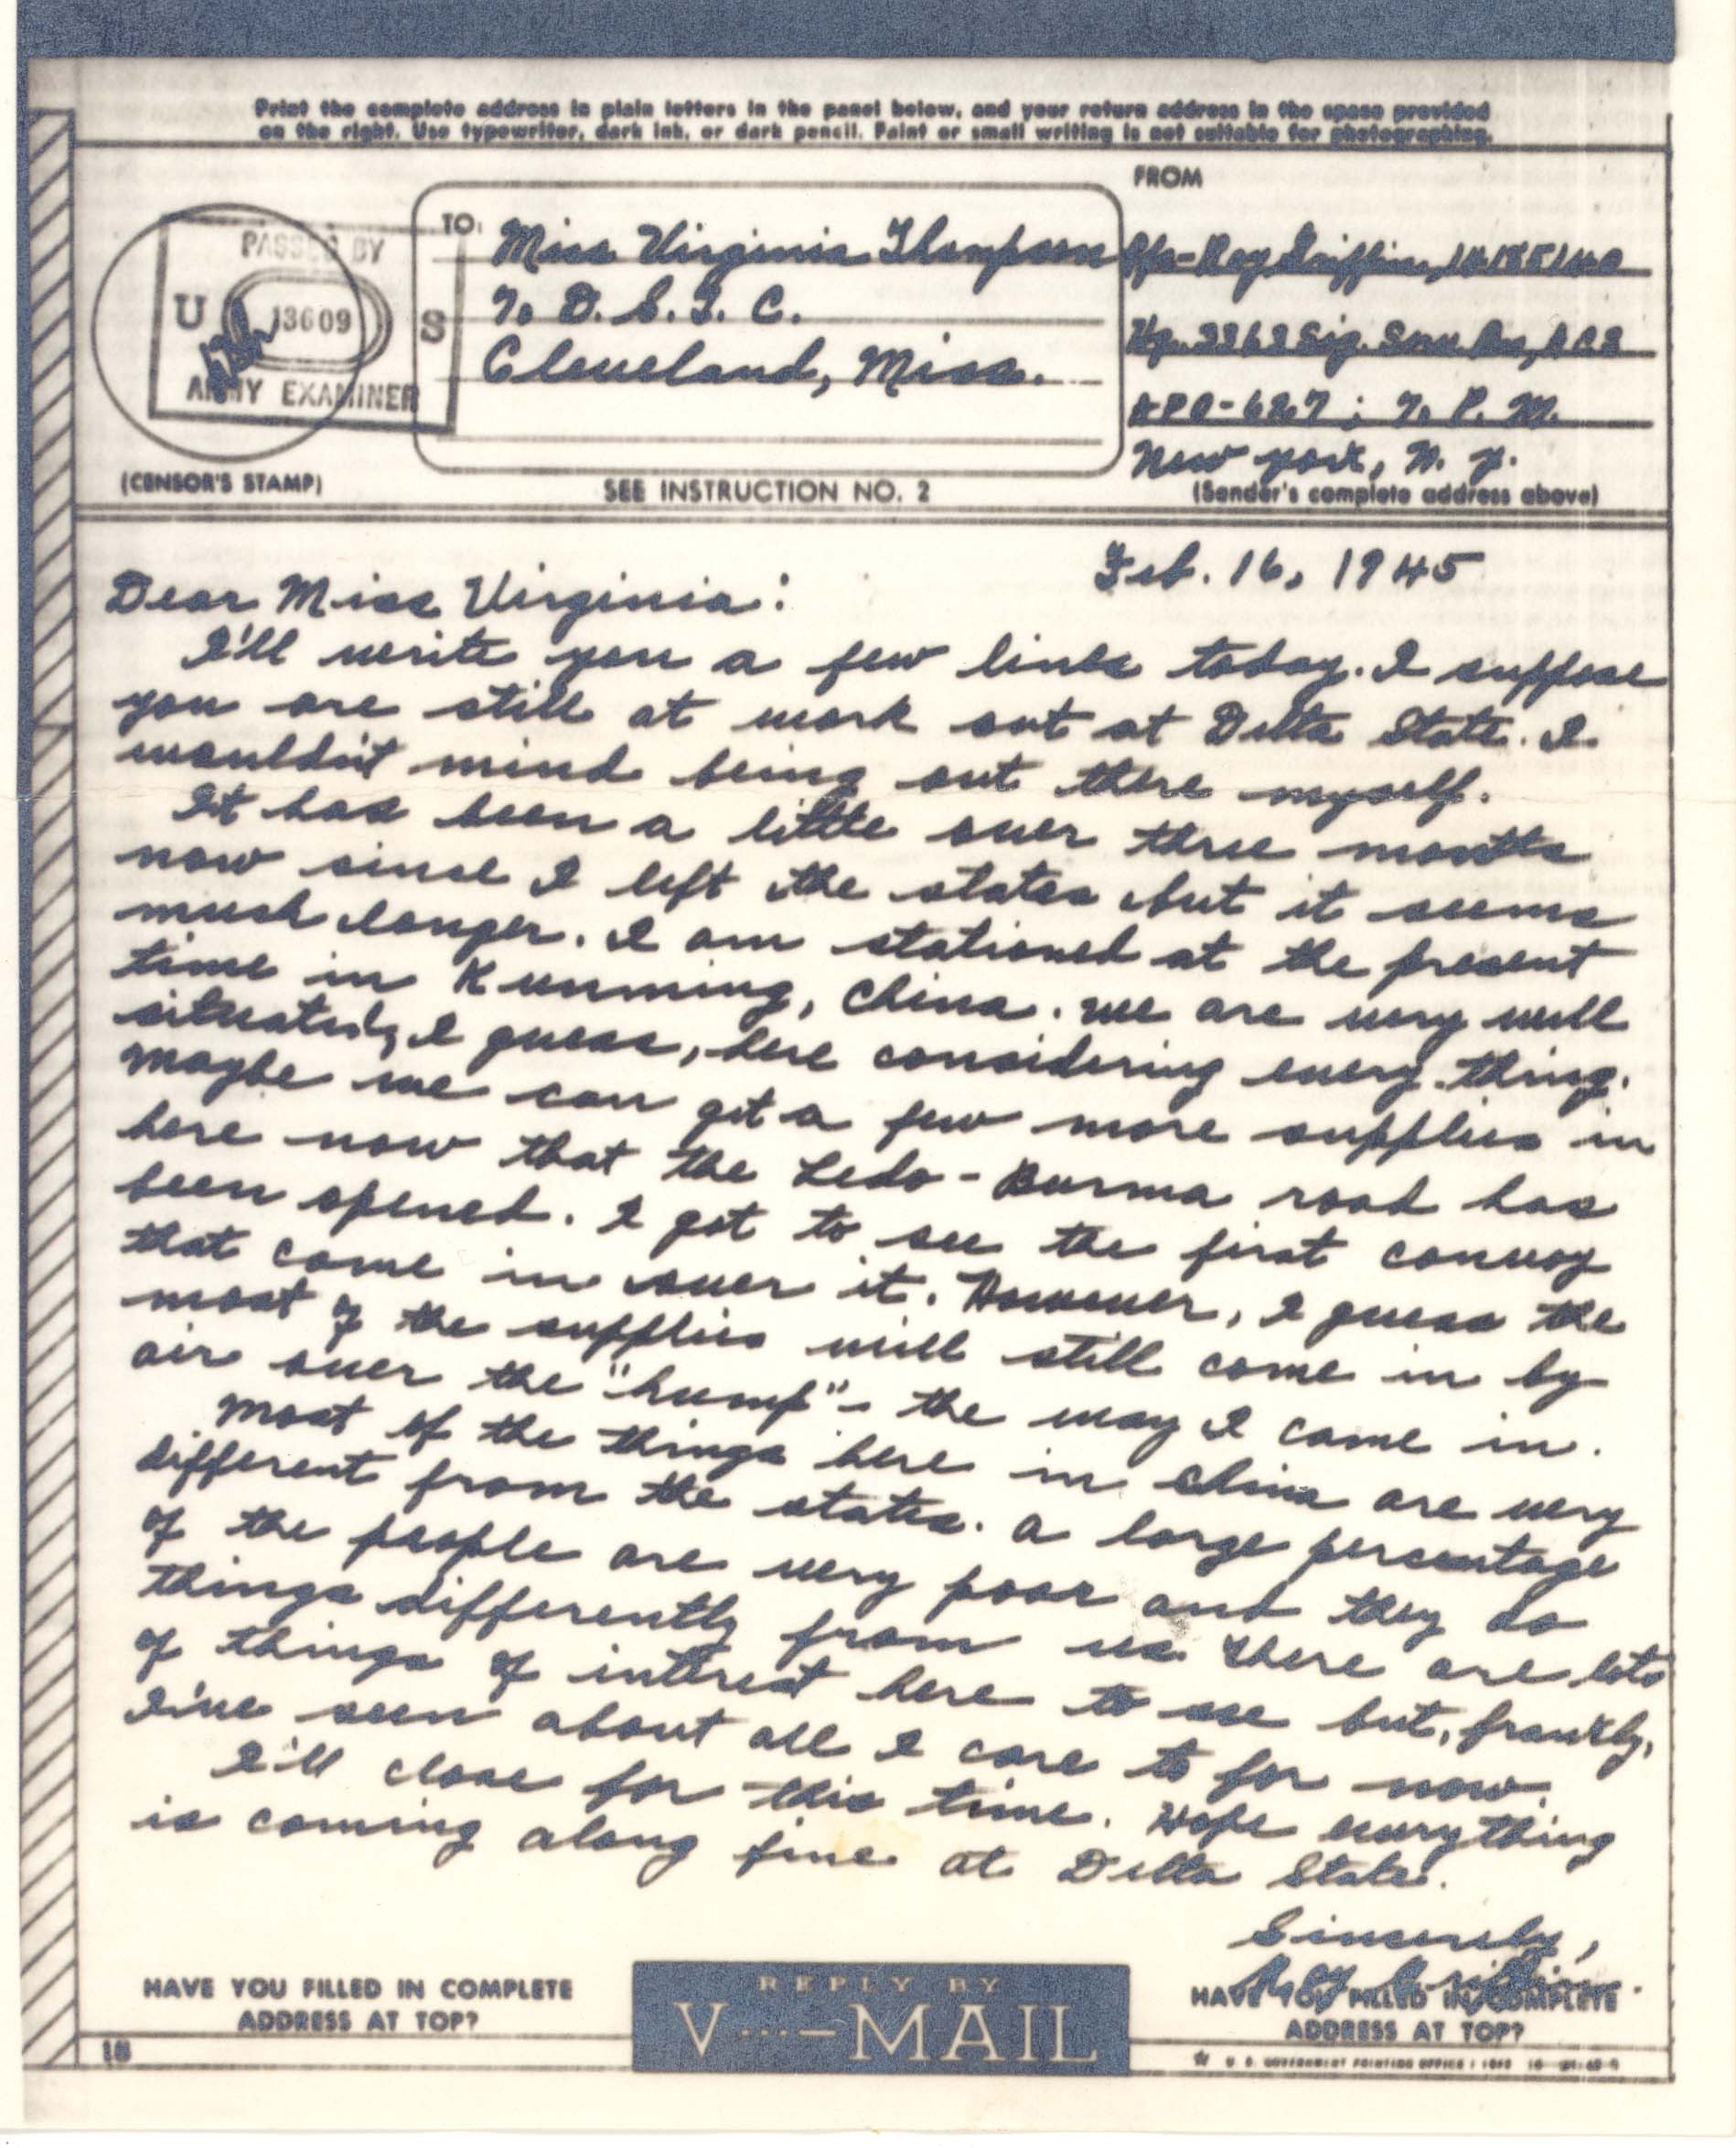 Print the complete address in plain letters in the panel below, and your return address in the space provided
on the right. Use typewriter, dark ink, or dark pencil. Faint or small writing is not suitable for photographing.
FROM
PASSED BY
U 13609 S
ARMY EXAMINER
(CENSOR'S STAMP)
TO:
Miss Virginia Thompson
% D. S. T. C.
Cleveland, Miss.
SEE INSTRUCTION NO. 2
Pfc-Roy Griffin,
Hq. 3363 Sig. Serv. Bn,
APO-627; % P. M.
New York, N. Y.
(Sender's complete address above)
Feb. 16, 1945
Dear Miss Virginia:
I'll write you a few lines today. I suppose
you are still at work out at Delta State. I
wouldn't mind being out there myself.
It has been a little over three months
now since I left the states but it seems
much longer. I am stationed at the present
time in Kunming, China. We are very well
situated, I guess, here considering every thing.
Maybe we can get a few more supplies in
here now that the Ledo-Burma road has
been opened. I got to see the first convoy
that come in over it. However, I guess the
most of the supplies will still come in by
air over the "hump" - the way I came in.
Most of the things here in China are very
different from the states. A large percentage
of the people are very poor and they do
things differently from us. There are lots
of things of interest here to see but, frankly,
I've seen about all I care to for now.
I'll close for this time. Hope everything
is coming along fine at Delta State.
Sincerely,
Roy Griffin.
HAVE YOU FILLED IN COMPLETE
ADDRESS AT TOP?
REPLY BY
V···—MAIL
HAVE YOU FILLED IN COMPLETE
ADDRESS AT TOP?
18
U. S. GOVERNMENT PRINTING OFFICE